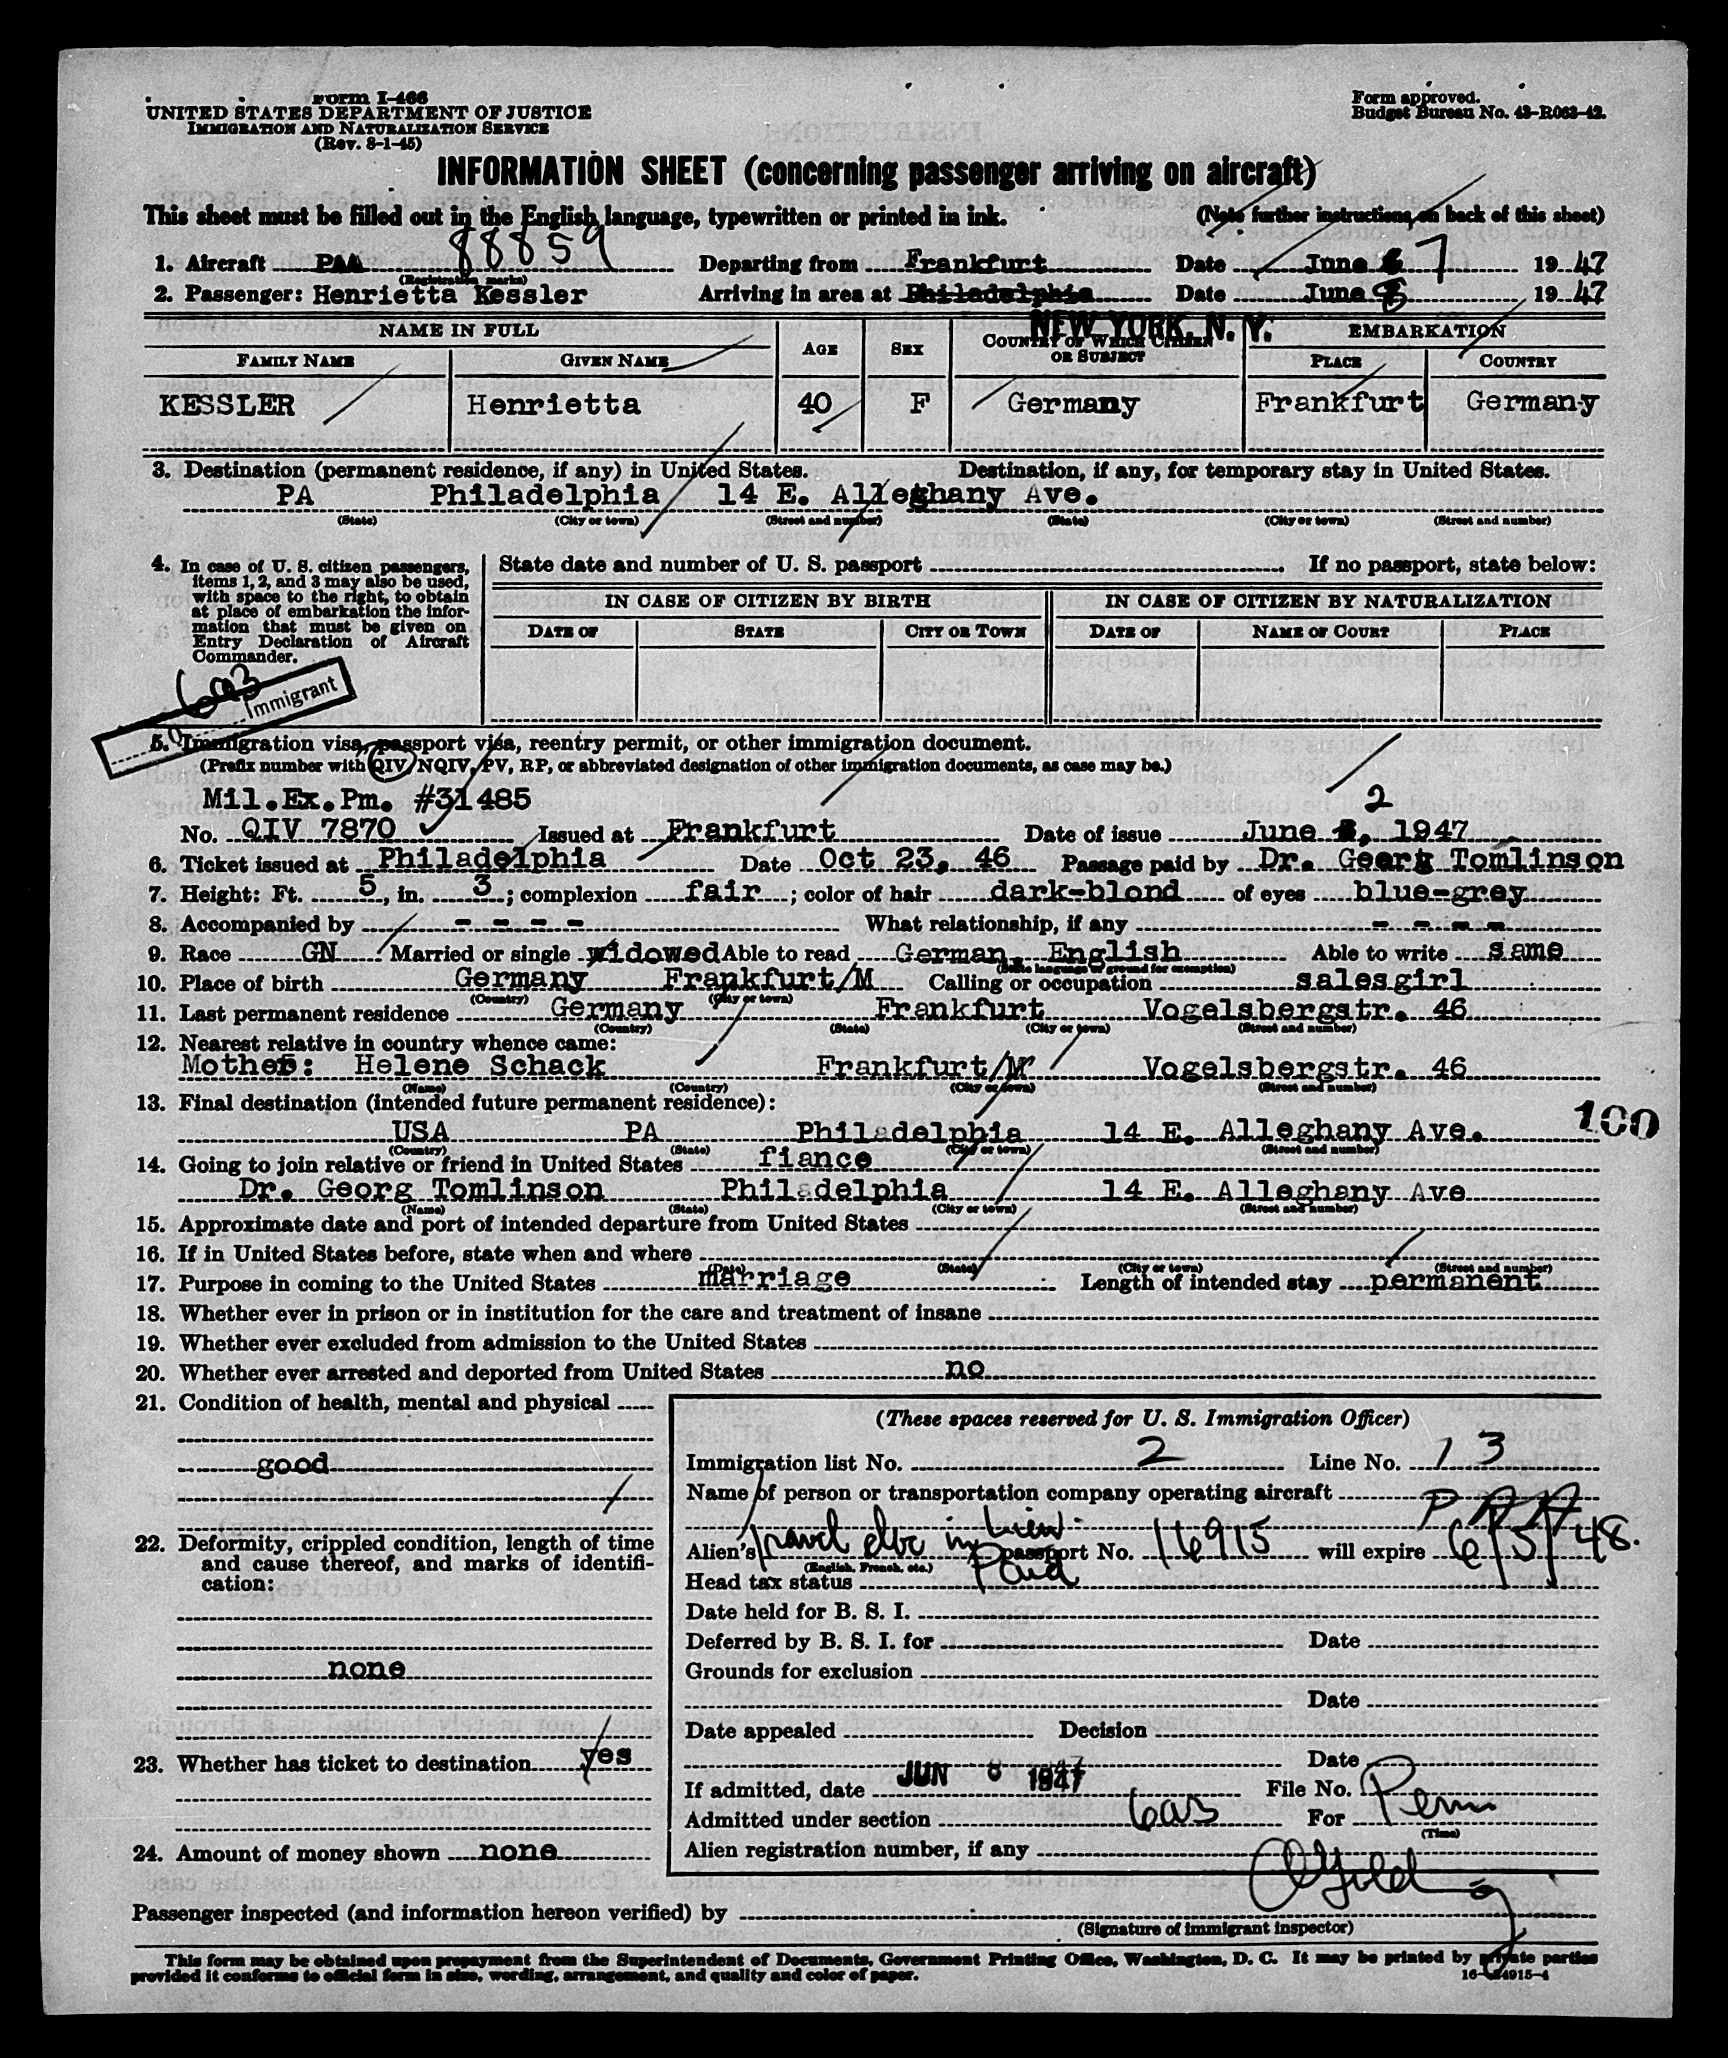 Form I-466
UNITED STATES DEPARTMENT OF JUSTICE
IMMIGRATION AND NATURALIZATION SERVICE
(Rev. 8-1-45)
Form approved.
Budget Bureau No. 43-R063-42.
INFORMATION SHEET (concerning passenger arriving on aircraft)
This sheet must be filled out in the English language, typewritten or printed in ink.
(Note further instructions on back of this sheet)
1. Aircraft PAA 88859 Departing from Frankfurt Date June 7 1947
(Registration marks)
2. Passenger: Henrietta Kessler Arriving in area at Philadelphia Date June 8 1947
NEW YORK, N. Y.
NAME IN FULL AGE SEX COUNTRY OF WHICH CITIZEN OR SUBJECT EMBARKATION
FAMILY NAME GIVEN NAME PLACE COUNTRY
KESSLER Henrietta 40 F Germany Frankfurt Germany
3. Destination (permanent residence, if any) in United States. Destination, if any, for temporary stay in United States.
PA Philadelphia 14 E. Alleghany Ave.
(State) (City or town) (Street and number) (State) (City or town) (Street and number)
4. In case of U. S. citizen passengers,
items 1, 2, and 3 may also be used,
with space to the right, to obtain
at place of embarkation the infor-
mation that must be given on
Entry Declaration of Aircraft
Commander.
State date and number of U. S. passport If no passport, state below:
IN CASE OF CITIZEN BY BIRTH IN CASE OF CITIZEN BY NATURALIZATION
DATE OF STATE CITY OR TOWN DATE OF NAME OF COURT PLACE
6a3
Immigrant
5. Immigration visa, passport visa, reentry permit, or other immigration document.
(Prefix number with QIV, NQIV, PV, RP, or abbreviated designation of other immigration documents, as case may be.)
Mil.Ex.Pm. #31485
2
No. QIV 7870 Issued at Frankfurt Date of issue June , 1947
6. Ticket issued at Philadelphia Date Oct 23, 46 Passage paid by Dr. Georg Tomlinson
7. Height: Ft. 5, in. 3; complexion fair; color of hair dark-blond of eyes blue-grey
8. Accompanied by - - - - What relationship, if any - - - -
9. Race GN Married or single widowed Able to read German, English Able to write same
(State language or ground for exemption)
10. Place of birth Germany Frankfurt/M Calling or occupation salesgirl
(Country) (City or town)
11. Last permanent residence Germany Frankfurt Vogelsbergstr. 46
(Country) (State) (City or town) (Street and number)
12. Nearest relative in country whence came:
Mother: Helene Schack Frankfurt/M Vogelsbergstr. 46
(Name) (Country) (City or town) (Street and number)
13. Final destination (intended future permanent residence):
USA PA Philadelphia 14 E. Alleghany Ave.
100
(Country) (State) (City or town) (Street and number)
14. Going to join relative or friend in United States fiance
Dr. Georg Tomlinson Philadelphia 14 E. Alleghany Ave
(Name) (State) (City or town) (Street and number)
15. Approximate date and port of intended departure from United States
16. If in United States before, state when and where
(Date) (State) (City or town) (Street and number)
17. Purpose in coming to the United States marriage Length of intended stay permanent
18. Whether ever in prison or in institution for the care and treatment of insane
19. Whether ever excluded from admission to the United States
20. Whether ever arrested and deported from United States no
21. Condition of health, mental and physical
good
22. Deformity, crippled condition, length of time
and cause thereof, and marks of identifi-
cation:
none
23. Whether has ticket to destination yes
24. Amount of money shown none
(These spaces reserved for U. S. Immigration Officer)
Immigration list No. 2 Line No. 13
Name of person or transportation company operating aircraft
PAA
Alien's travel doc in lieu passport No. 16915 will expire 6/5/48.
(English, French, etc.)
Head tax status Paid
Date held for B. S. I.
Deferred by B. S. I. for Date
Grounds for exclusion
Date
Date appealed Decision
Date
If admitted, date JUN 8 1947 File No.
Admitted under section 6a3 For Perm
(Time)
Alien registration number, if any
Passenger inspected (and information hereon verified) by
(Signature of immigrant inspector)
This form may be obtained upon prepayment from the Superintendent of Documents, Government Printing Office, Washington, D. C. It may be printed by private parties
provided it conforms to official form in size, wording, arrangement, and quality and color of paper.